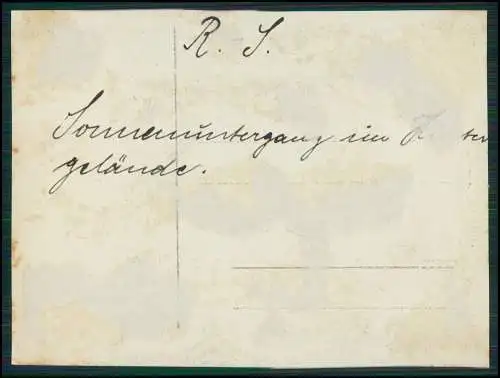 R. S.
Sonnenuntergang im
gelände.